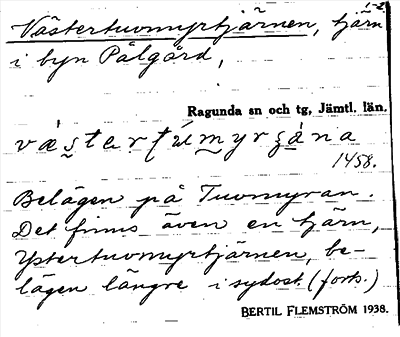 Västertuvmyrtjärnen, tjärn
1-2
i byn Pålgård,
Ragunda sn och tg, Jämtl. län.
1458.
Belägen på Tuvmyran.
Det finns även en tjärn,
Ystertuvmyrtjärnen, be-
lägen längre i sydost. (forts.)
BERTIL FLEMSTRÖM 1938.